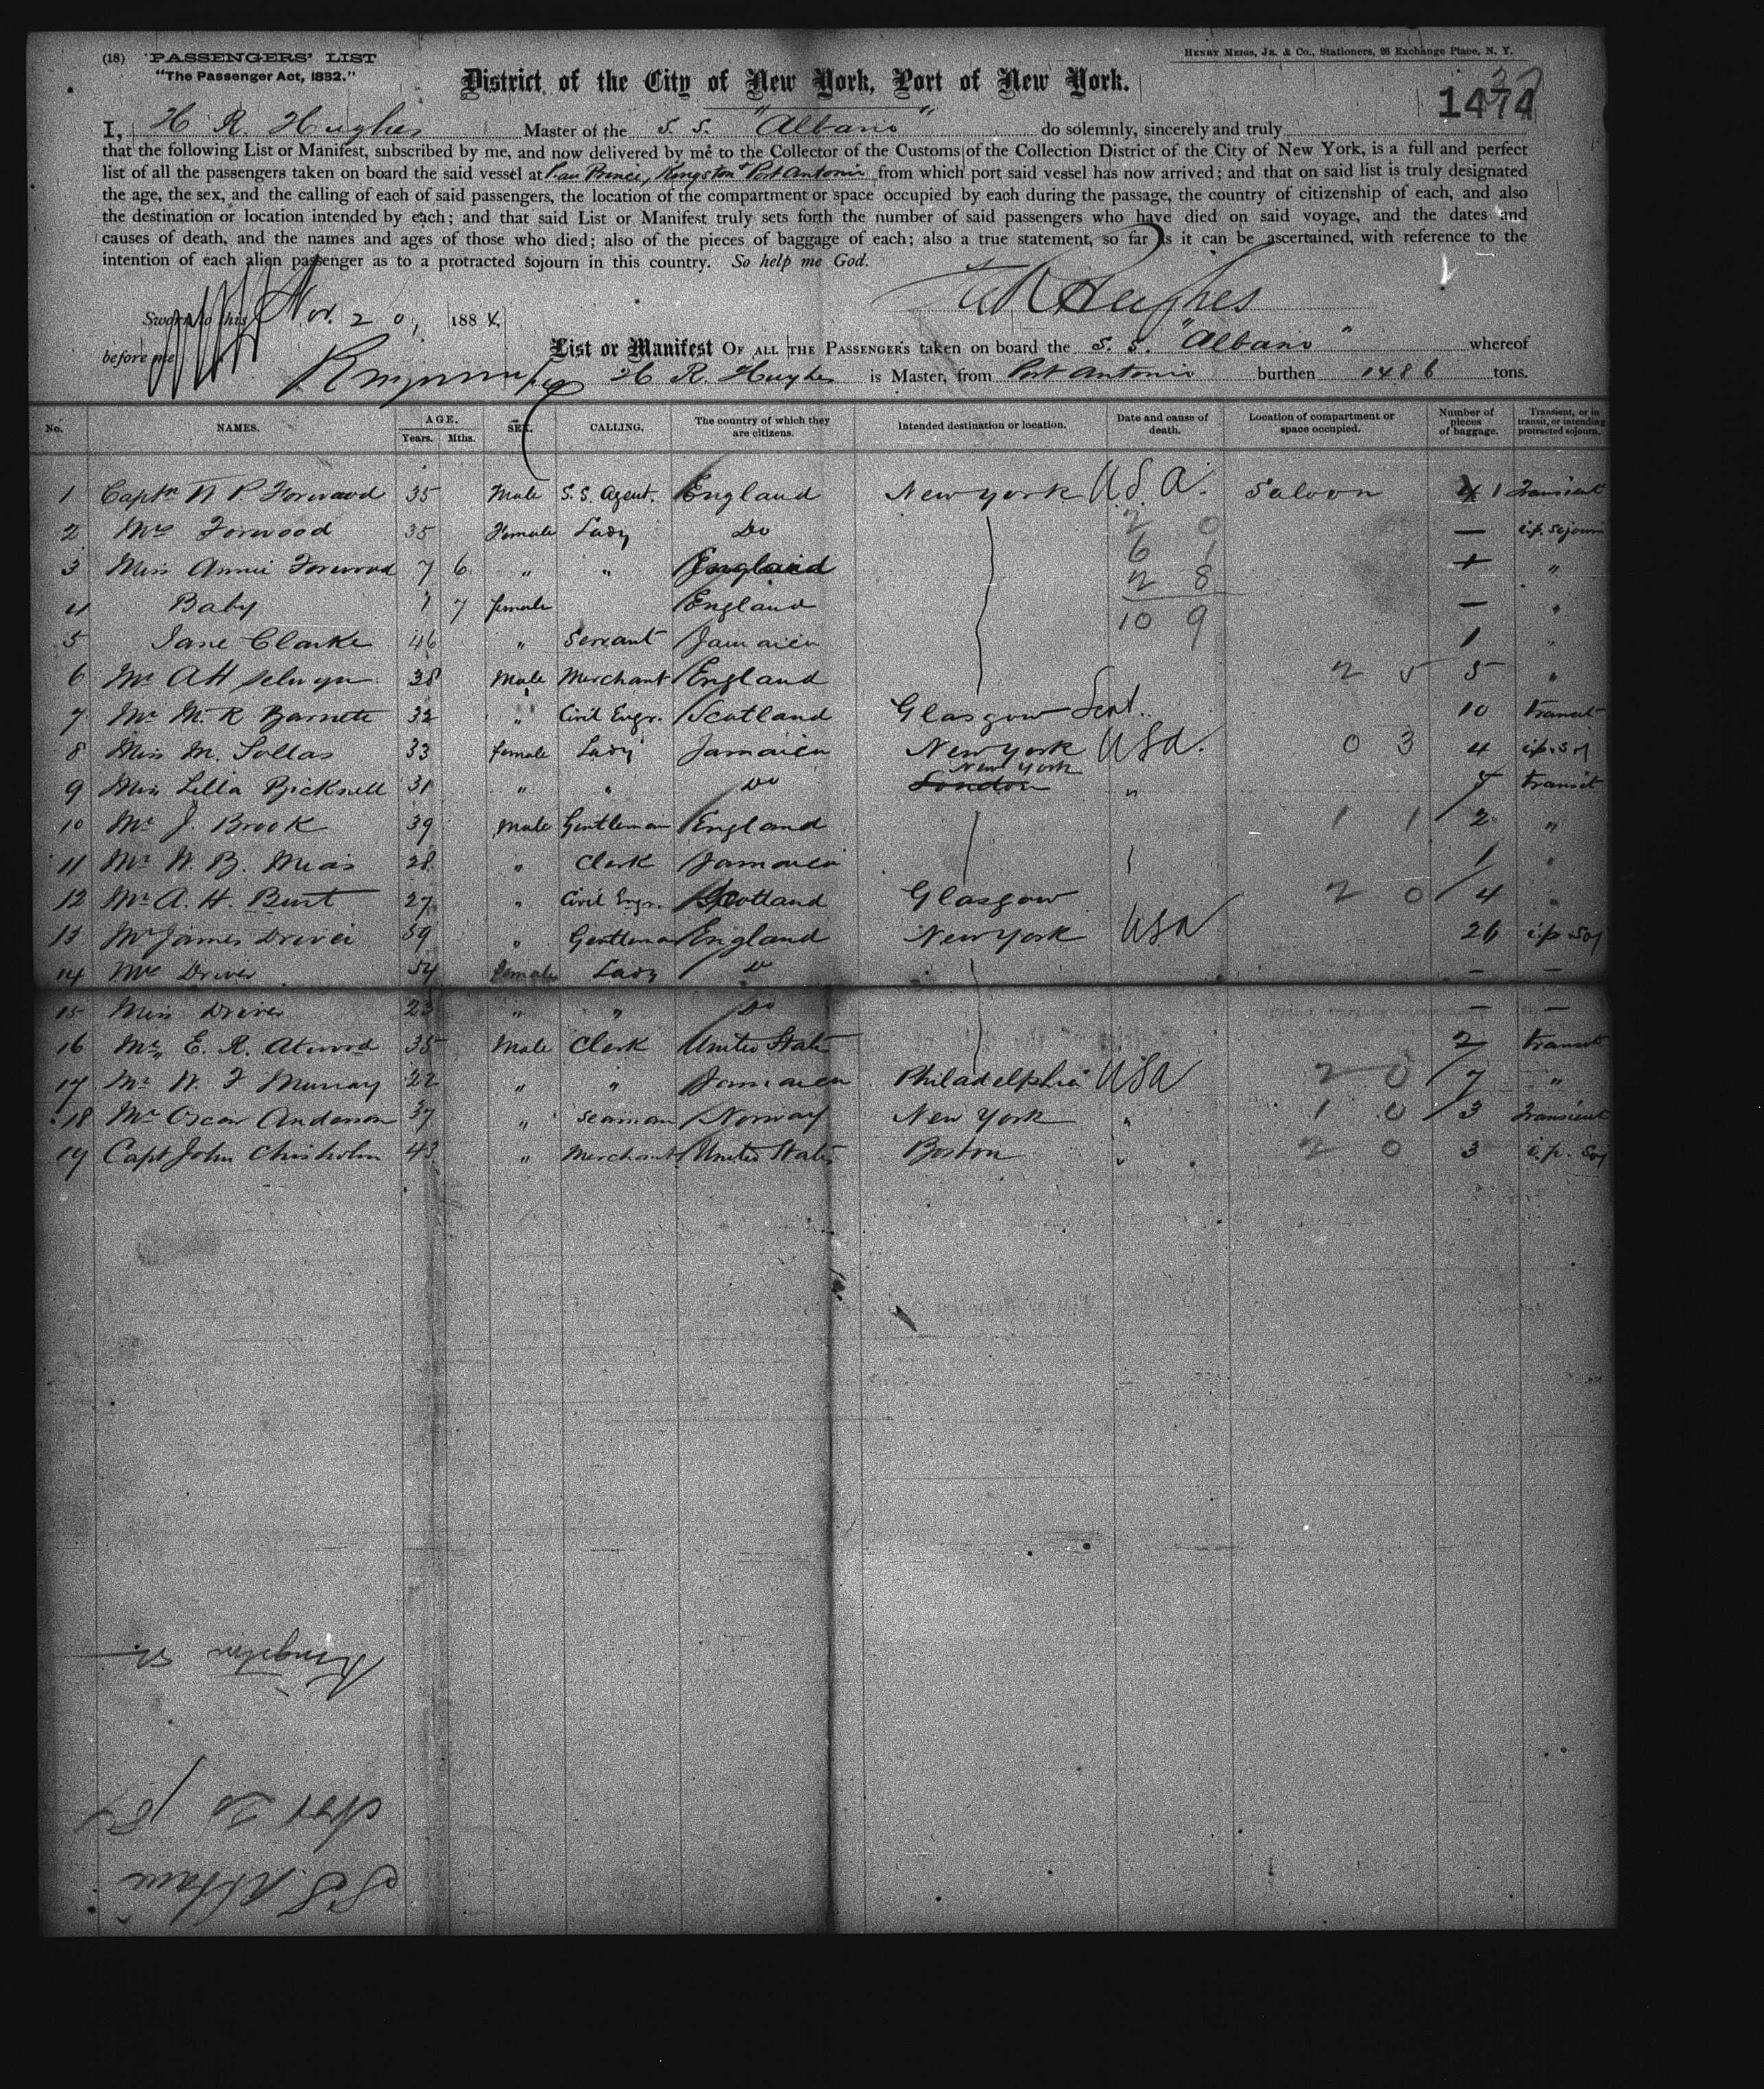 (18) PASSENGERS' LIST
"The Passenger Act, 1882."
HENRY MEIGS, JR. & CO., Stationers, 26 Exchange Place, N. Y.
District of the City of New York, Port of New York.
37
1474
I, H R. Hughes Master of the S. S. "Albano" do solemnly, sincerely and truly
that the following List or Manifest, subscribed by me, and now delivered by me to the Collector of the Customs of the Collection District of the City of New York, is a full and perfect
list of all the passengers taken on board the said vessel at Pau Prince, Kingston & Port Antonio from which port said vessel has now arrived; and that on said list is truly designated
the age, the sex, and the calling of each of said passengers, the location of the compartment or space occupied by each during the passage, the country of citizenship of each, and also
the destination or location intended by each; and that said List or Manifest truly sets forth the number of said passengers who have died on said voyage, and the dates and
causes of death, and the names and ages of those who died; also of the pieces of baggage of each; also a true statement, so far as it can be ascertained, with reference to the
intention of each alien passenger as to a protracted sojourn in this country. So help me God.
H R Hughes
Sworn to this Nov. 20, 1884.
before me
List or Manifest OF ALL THE PASSENGERS taken on board the S. S. "Albano" whereof
H R. Hughes is Master, from Port Antonio burthen 1486 tons.
No. NAMES. AGE. Years. Mths. SEX. CALLING. The country of which they are citizens. Intended destination or location. Date and cause of death. Location of compartment or space occupied. Number of pieces of baggage. Transient, or in transit, or intending protracted sojourn.
1 Captn W P Forwood 35 Male S. S. Agent. England New York U.S.A. Saloon 1 Transient
2 Mrs Forwood 35 Female Lady Do 2 0 — i.p. sojourn
3 Miss Annie Forwood 7 6 " " England 6 1 "
2 8
4 Baby 1 7 female England — "
10 9
5 Jane Clarke 46 " Servant Jamaica 1 "
6 Mr A H Selwyn 38 Male Merchant England 2 5 5 "
7 Mr M. R Barnett 32 " Civil Engr. Scotland Glasgow Scot. 10 transit
8 Miss M. Sollas 33 female Lady Jamaica New York USA. 0 3 4 i.p. soj
New York
9 Miss Lilla Bicknell 31 " " Do London " 5 transit
10 Mr J. Brook 39 Male Gentleman England 1 1 2 "
11 Mr W. B. Mais 28 " Clerk Jamaica 1 "
12 Mr A. H. Burt 27 " Civil Engr. Scotland Glasgow 2 0 4 "
13 Mr James Driver 59 " Gentleman England New York USA 26 i.p. soj
14 Mrs Driver 54 female Lady Do — —
15 Miss Driver 23 " " Do — —
16 Mr. E. R. Atwood 35 Male Clerk United States 2 transit
17 Mr W. F Murray 22 " " Jamaica Philadelphia USA 2 0 7 "
18 Mr Oscar Anderson 37 " Seaman Norway New York " 1 0 3 Transient
19 Capt John Chisholm 43 " Merchant United States Boston " 2 0 3 i.p. soj
Kingston
Nov 20 / 84
S S Albano